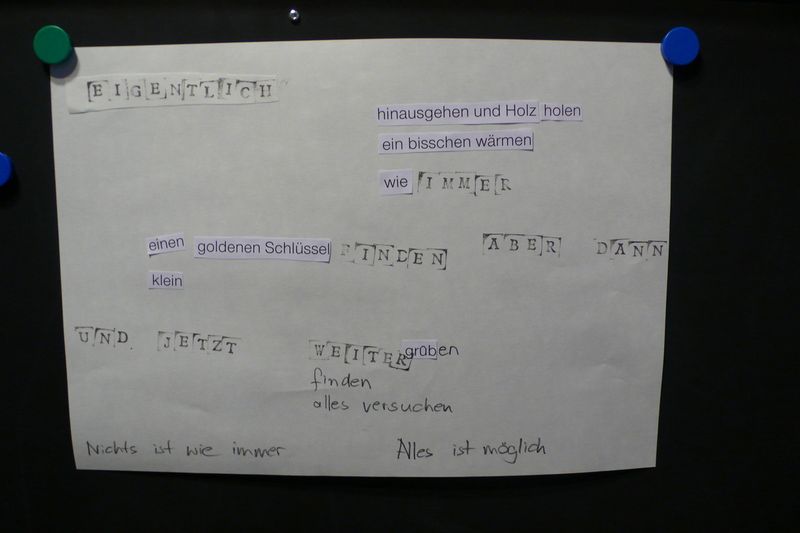 EIGENTLICH
hinausgehen und Holz holen
ein bisschen wärmen
wie IMMER
einen goldenen Schlüssel FINDEN ABER DANN
klein
UND JETZT WEITER graben
finden
alles versuchen
Nichts ist wie immer Alles ist möglich